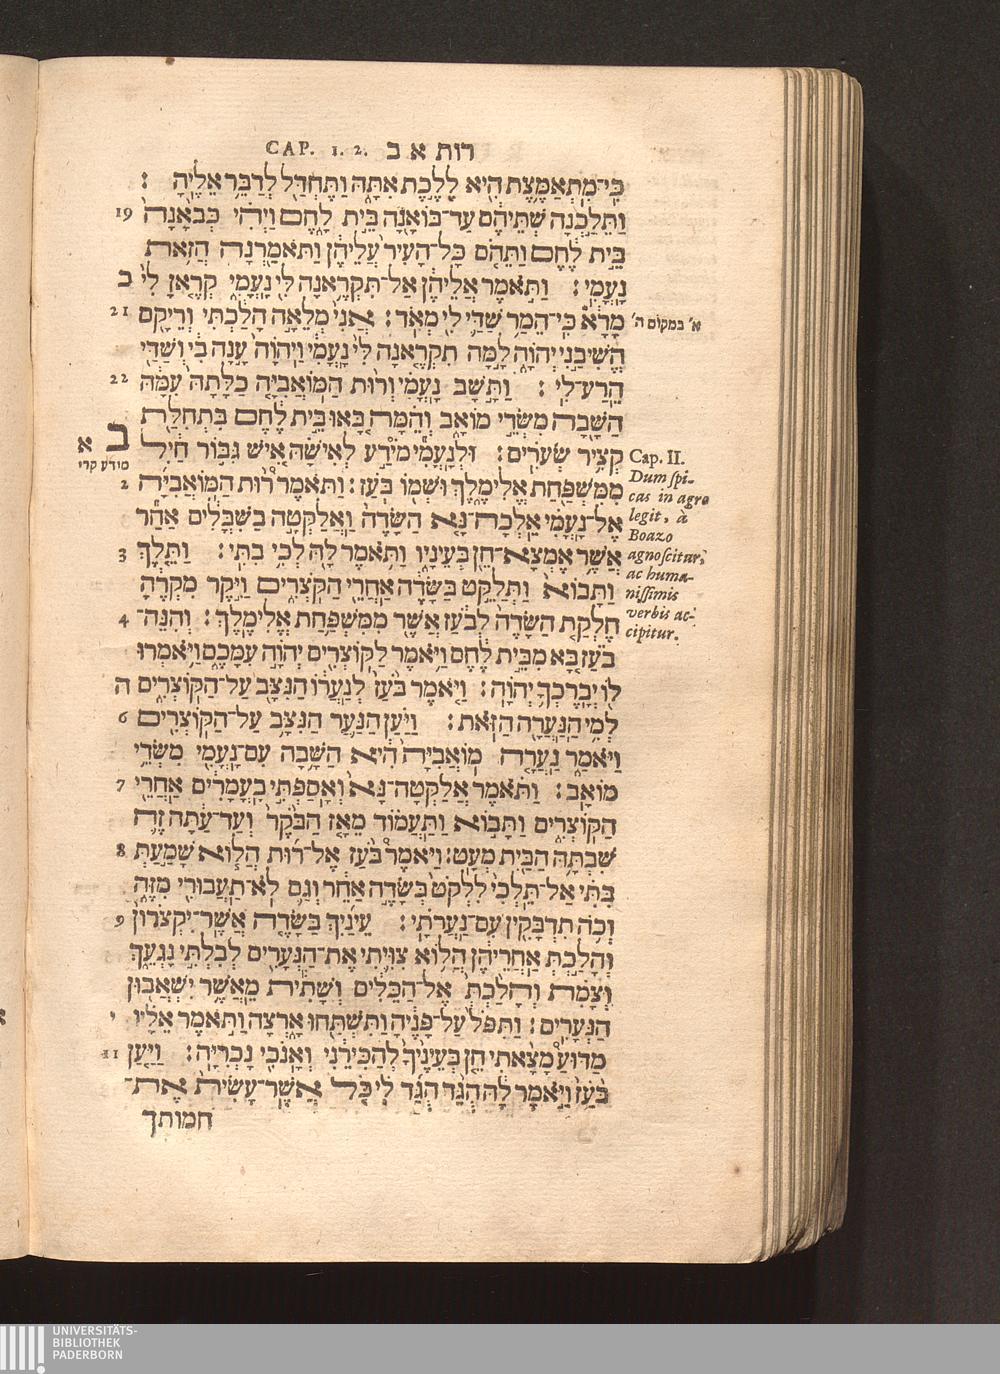 CAP. 1. 2. רות א ב
כִּי־מִתְאַמֶּצֶת הִיא לָלֶכֶת אִתָּהּ וַתֶּחְדַּל לְדַבֵּר אֵלֶיהָ :
19 וַתֵּלַכְנָה שְׁתֵּיהֶם עַד־בּוֹאָנָה בֵּית לָחֶם וַיְהִי כְּבֹאָנָה
בֵּית לֶחֶם וַתֵּהֹם כָּל־הָעִיר עֲלֵיהֶן וַתֹּאמַרְנָה הֲזֹאת
כ נָעֳמִי : וַתֹּאמֶר אֲלֵיהֶן אַל־תִּקְרֶאנָה לִי נָעֳמִי קְרֶאןָ לִי
21 מָרָא כִּי־הֵמַר שַׁדַּי לִי מְאֹד : אֲנִי מְלֵאָה הָלַכְתִּי וְרֵיקָם
א' במקום ה'
הֱשִׁיבַנִי יְהוָה לָמָּה תִקְרֶאנָה לִי נָעֳמִי וַיהוָה עָנָה בִי וְשַׁדַּי
22 הֵרַע־לִי : וַתָּשָׁב נָעֳמִי וְרוּת הַמּוֹאֲבִיָּה כַלָּתָהּ עִמָּהּ
הַשָּׁבָה מִשְּׂדֵי מוֹאָב וְהֵמָּה בָּאוּ בֵּית לֶחֶם בִּתְחִלַּת
ב א קְצִיר שְׂעֹרִים : וּלְנָעֳמִי מֹידָע לְאִישָׁהּ אִישׁ גִּבּוֹר חַיִל
מודע קרי
Cap. II.
Dum spi-
cas in agro
legit, à
Boazo
agnoscitur,
ac huma-
nissimis
verbis ac-
cipitur.
2 מִמִּשְׁפַּחַת אֱלִימֶלֶךְ וּשְׁמוֹ בֹּעַז : וַתֹּאמֶר רוּת הַמּוֹאֲבִיָּה
אֶל־נָעֳמִי אֵלְכָה־נָּא הַשָּׂדֶה וַאֲלַקֳטָה בַשִּׁבֳּלִים אַחַר
3 אֲשֶׁר אֶמְצָא־חֵן בְּעֵינָיו וַתֹּאמֶר לָהּ לְכִי בִתִּי : וַתֵּלֶךְ
וַתָּבוֹא וַתְּלַקֵּט בַּשָּׂדֶה אַחֲרֵי הַקֹּצְרִים וַיִּקֶר מִקְרֶהָ
4 חֶלְקַת הַשָּׂדֶה לְבֹעַז אֲשֶׁר מִמִּשְׁפַּחַת אֱלִימֶלֶךְ : וְהִנֵּה־
בֹעַז בָּא מִבֵּית לֶחֶם וַיֹּאמֶר לַקּוֹצְרִים יְהוָה עִמָּכֶם וַיֹּאמְרוּ
ה לוֹ יְבָרֶכְךָ יְהוָה : וַיֹּאמֶר בֹּעַז לְנַעֲרוֹ הַנִּצָּב עַל־הַקּוֹצְרִים
6 לְמִי הַנַּעֲרָה הַזֹּאת : וַיַּעַן הַנַּעַר הַנִּצָּב עַל־הַקּוֹצְרִים
וַיֹּאמַר נַעֲרָה מוֹאֲבִיָּה הִיא הַשָּׁבָה עִם־נָעֳמִי מִשְּׂדֵי
7 מוֹאָב : וַתֹּאמֶר אֲלַקֳטָה־נָּא וְאָסַפְתִּי בָעֳמָרִים אַחֲרֵי
הַקּוֹצְרִים וַתָּבוֹא וַתַּעֲמוֹד מֵאָז הַבֹּקֶר וְעַד־עַתָּה זֶה
8 שִׁבְתָּהּ הַבַּיִת מְעָט : וַיֹּאמֶר בֹּעַז אֶל־רוּת הֲלוֹא שָׁמַעַתְּ
בִּתִּי אַל־תֵּלְכִי לִלְקֹט בְּשָׂדֶה אַחֵר וְגַם לֹא־תַעֲבוּרִי מִזֶּה
9 וְכֹה תִדְבָּקִין עִם־נַעֲרֹתָי : עֵינַיִךְ בַּשָּׂדֶה אֲשֶׁר־יִקְצֹרוּן
וְהָלַכְתְּ אַחֲרֵיהֶן הֲלוֹא צִוִּיתִי אֶת־הַנְּעָרִים לְבִלְתִּי נָגְעֵךְ
וְצָמִת וְהָלַכְתְּ אֶל־הַכֵּלִים וְשָׁתִית מֵאֲשֶׁר יִשְׁאֲבוּן
י הַנְּעָרִים : וַתִּפֹּל עַל־פָּנֶיהָ וַתִּשְׁתַּחוּ אָרְצָה וַתֹּאמֶר אֵלָיו
11 מַדּוּעַ מָצָאתִי חֵן בְּעֵינֶיךָ לְהַכִּירֵנִי וְאָנֹכִי נָכְרִיָּה : וַיַּעַן
בֹּעַז וַיֹּאמֶר לָהּ הֻגֵּד הֻגַּד לִי כֹּל אֲשֶׁר־עָשִׂית אֶת־
חמותך
UNIVERSITÄTS-
BIBLIOTHEK
PADERBORN